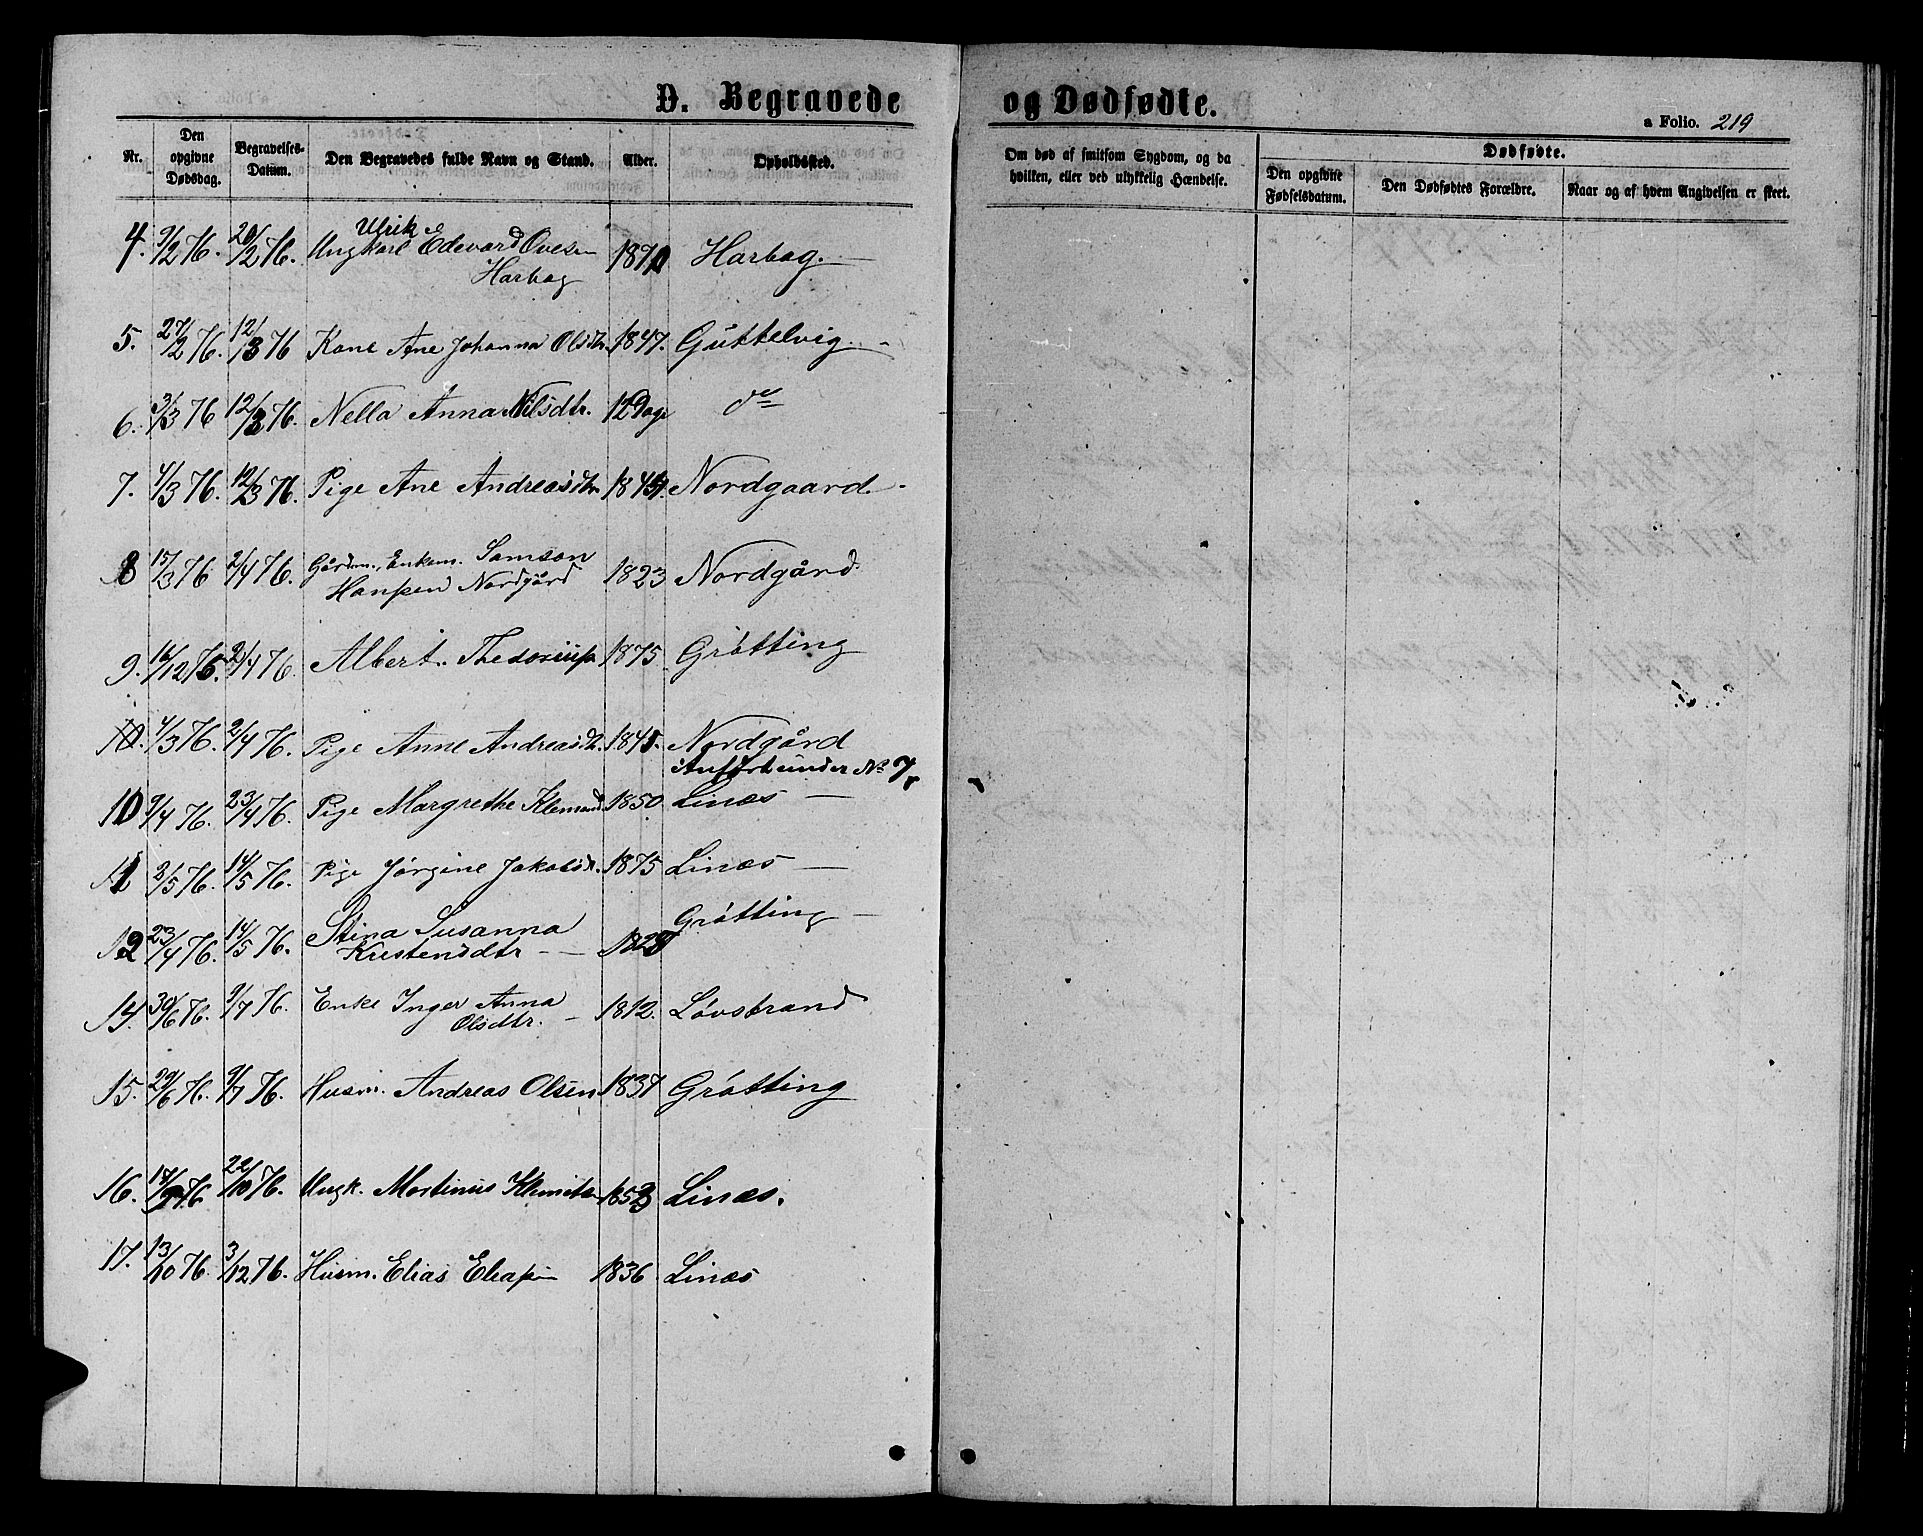 D. Begravede og Dødfødte.
a Folio. 219
Nr. Den opgivne Dødsdag. Begravelses-Datum. Den Begravedes fulde Navn og Stand. Alder. Opholdssted. Om død af smitsom Sygdom, og da hvilken, eller ved ulykkelig Hændelse. Dødfødte. Den opgivne Fødselsdatum. Den Dødfødtes Forældre. Naar og af hvem Angivelsen er skeet.
Ulrik
4. 9/2 76. 20/2 76. Ungkarl Edevard Ovesen 1870 Harbag.
Harbag
5. 27/2 76. 12/3 76 Kone Ane Johanna Olsdtr. 1847. Guttelvig.
6. 3/3 76 12/3 76. Nella Anna Nilsdtr. 12 Dage do
7. 4/3 76. 12/3 76. Pige Ane Andreasdtr. 1845. Nordgaard.
8 15/3 76 2/4 76. Gårdm., Enkem. Samson 1823 Nordgård.
Hansen Nordgård
9. 16/12 76. 2/4 76. Albert. 1875. Grøtting
10. 4/3 76. 2/4 76. Pige Anne Andreasdtr. 1845. Nordgård
Anført under No 7.
10 9/4 76. 23/4 76. Pige Margrethe 1850. Linæs
11 2/5 76. 14/5 76. Pige Jørgine Jakobsdtr. 1875 Linæs
12 23/4 76. 14/5 76. Stina Susanna Grøtting
Kristensdtr 1828
14. 30/6 76. 9/7 76. Enke Inger Anna 1812. Løvstrand
Olsdtr.
15. 29/6 76. 9/7 76. Husm. Andreas Olsen 1837 Grøtting
16. 76 22/10 76. Ungk. Martinus 1853 Linæs.
17. 13/10 76. 3/12 76. Husm. Elias Eliassen 1836 Linæs